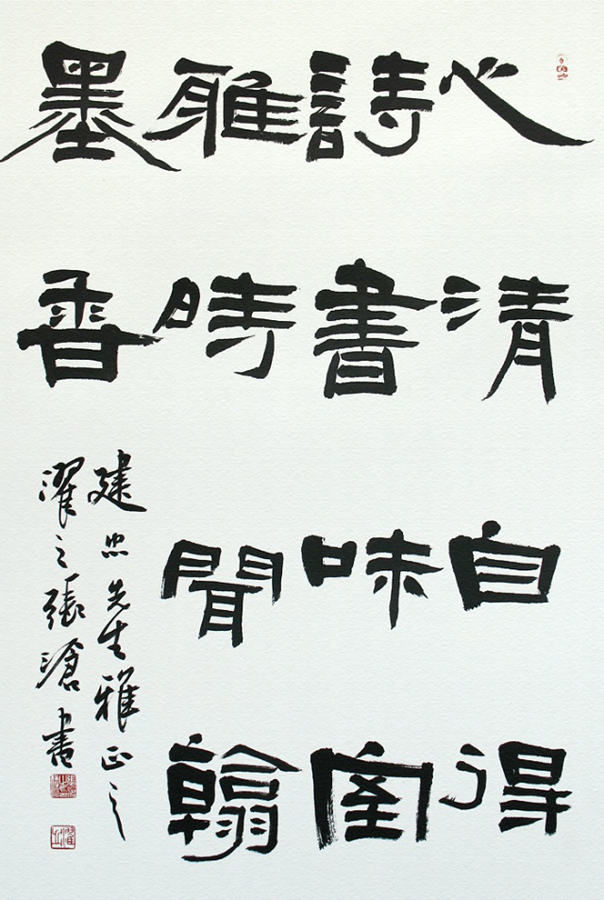 心清自得
詩書味室
雅時聞翰
墨香
建忠先生雅正之
濯之張滄書